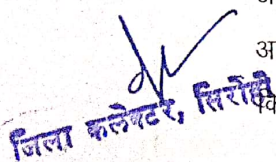 अ
जिला कलेक्टर, सिरोही